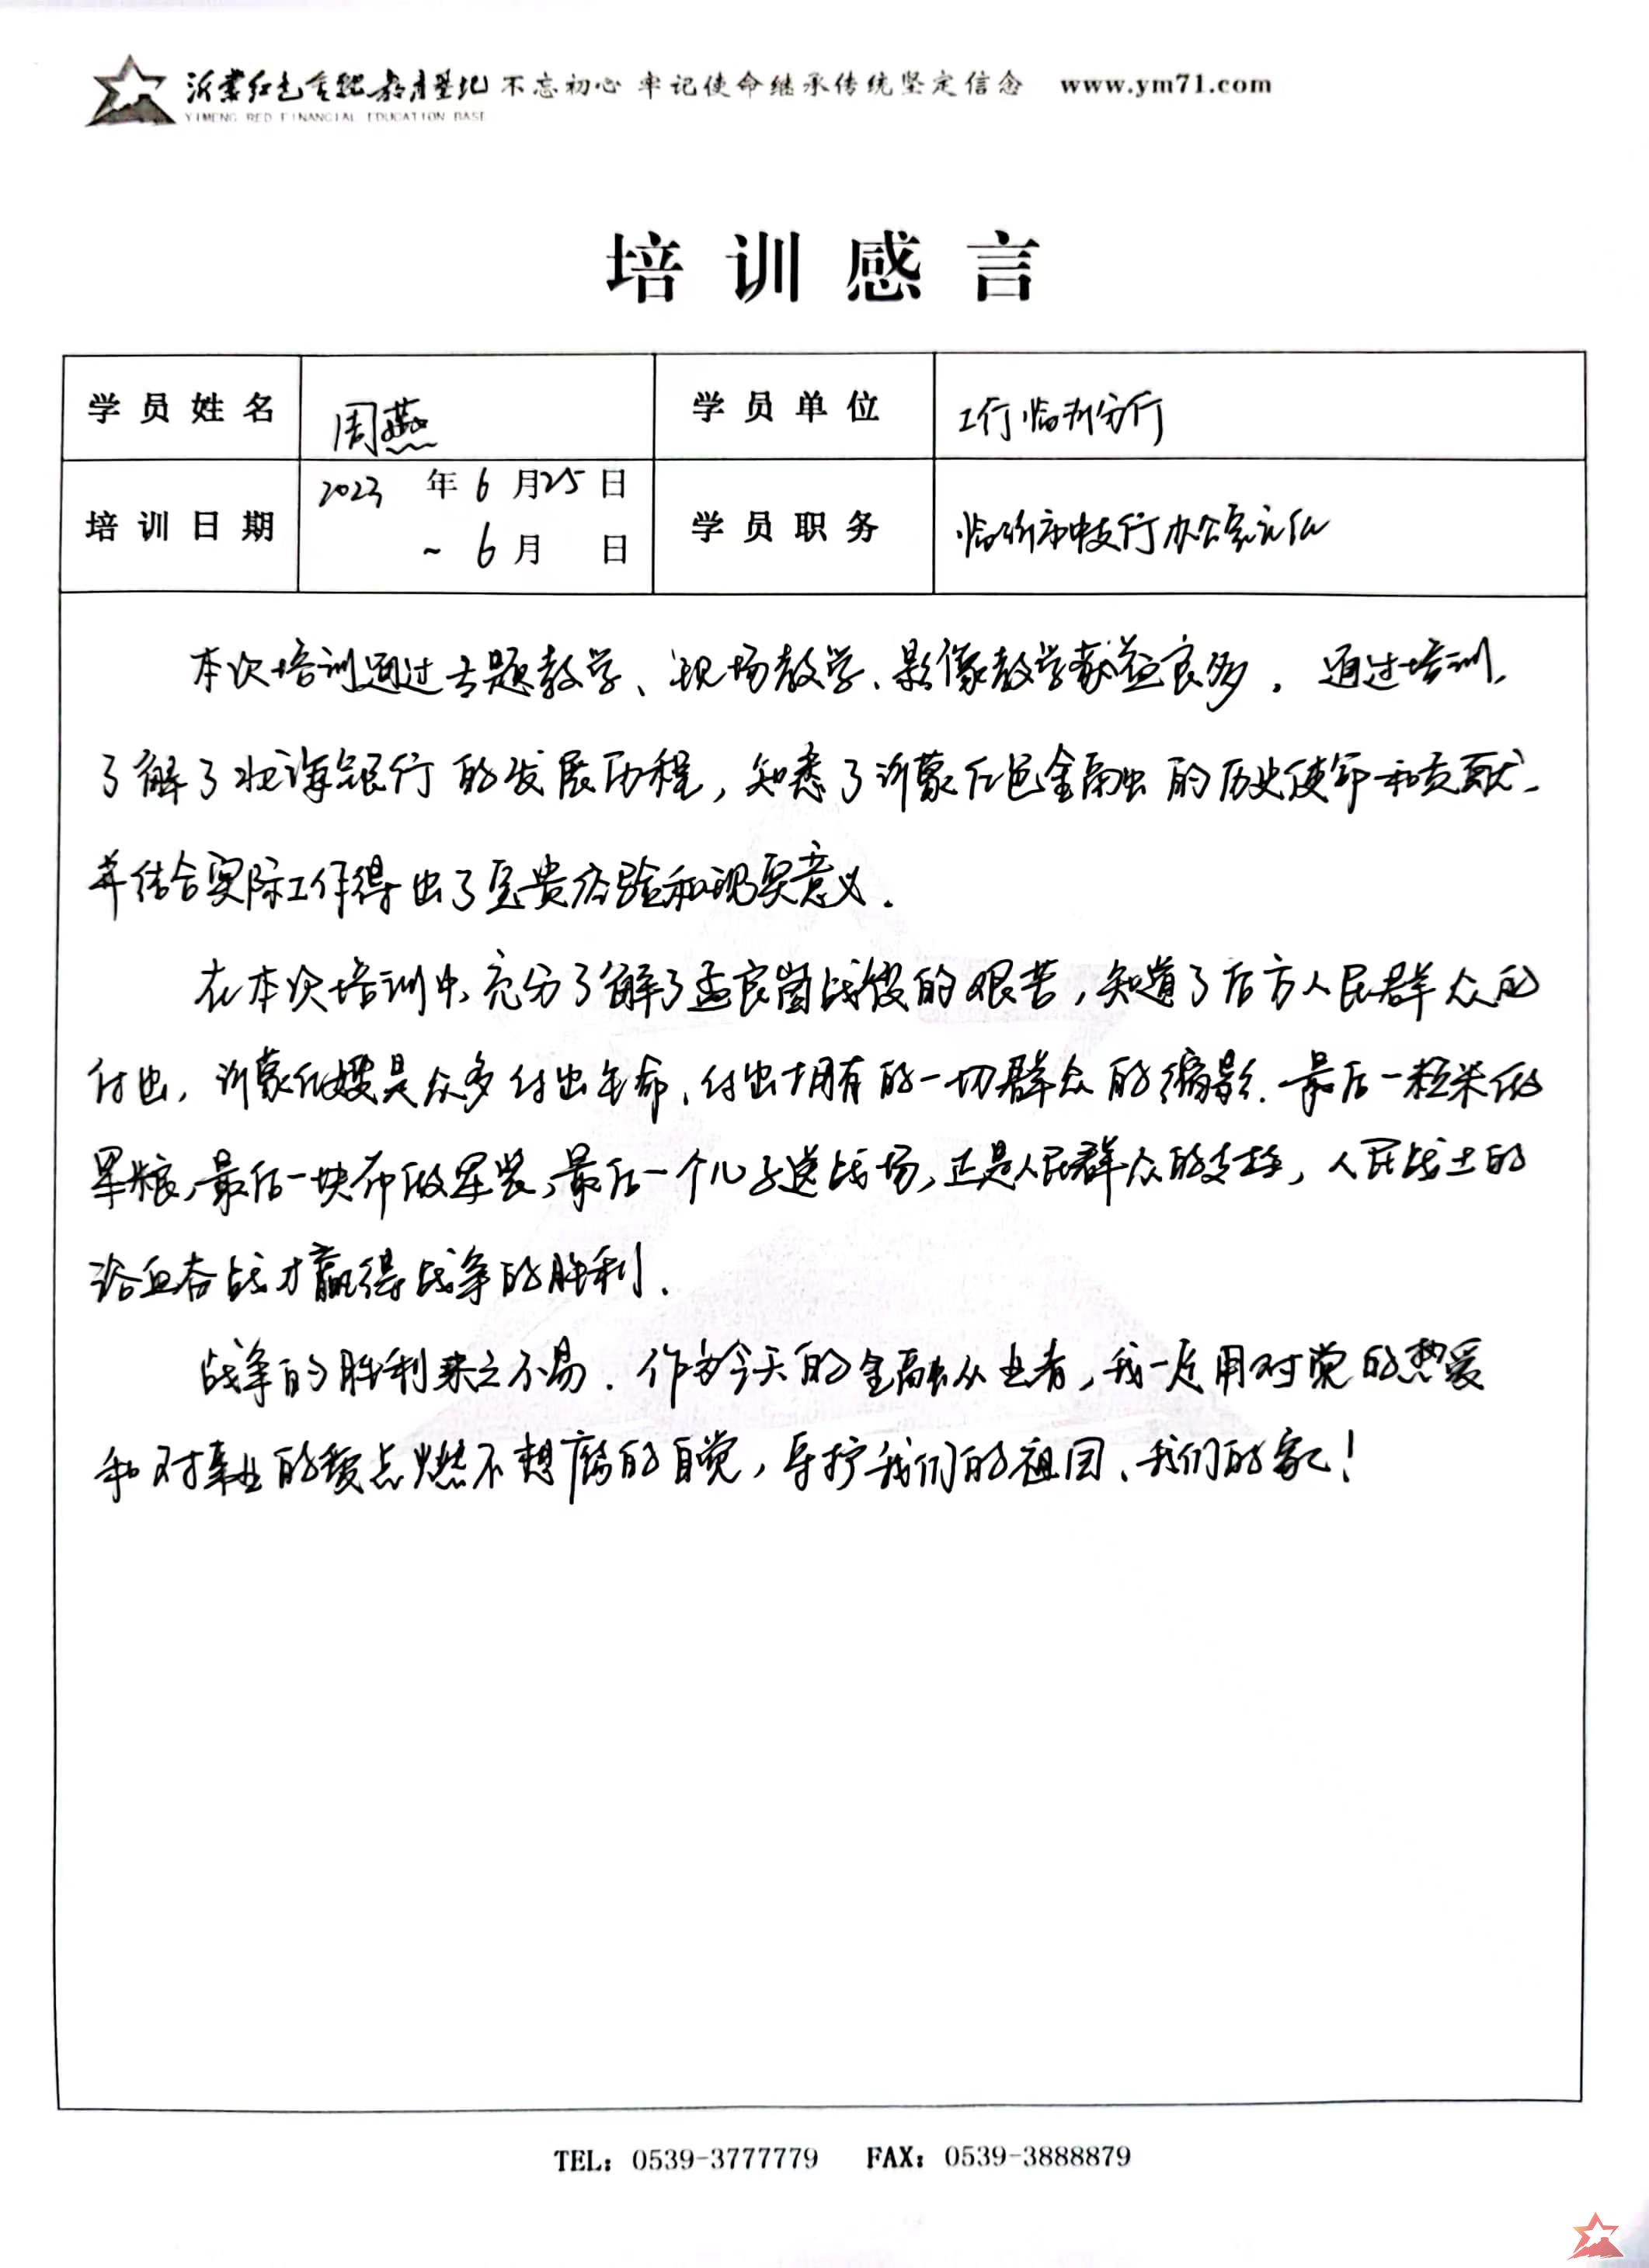 沂蒙红色金融教育基地 不忘初心 牢记使命继承传统坚定信念 www.ym71.com
YIMENG RED FINANCIAL EDUCATION BASE
培训感言
学员姓名 周燕 学员单位 工行临沂分行
培训日期 2023年6月25日 ~6月 日 学员职务 临沂市中支行办公室主任
本次培训通过专题教学、现场教学、影像教学获益良多。通过培训，
了解了北海银行的发展历程，知悉了沂蒙红色金融的历史使命和贡献，
并结合实际工作得出了宝贵经验和现实意义。
在本次培训中，充分了解了孟良崮战役的艰苦，知道了后方人民群众的
付出，沂蒙红嫂是众多付出生命、付出拥有的一切群众的缩影。最后一粒米做
军粮，最后一块布做军装，最后一个儿子送战场，正是人民群众的支持，人民战士的
浴血奋战才赢得战争的胜利。
战争的胜利来之不易。作为今天的金融从业者，我一定用对党的热爱
和对事业的爱点燃不想腐的自觉，守护我们的祖国、我们的家！
TEL：0539-3777779 FAX：0539-3888879